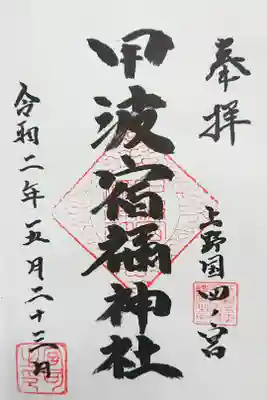 奉拝
上野国四ノ宮
甲波宿祢神社
令和二年五月二十三日